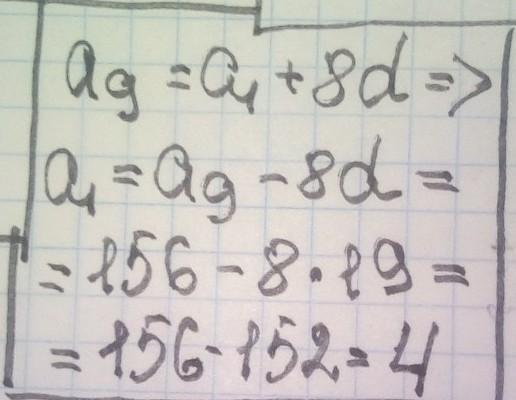 a₉ = a₁ + 8d =>
a₁ = a₉ - 8d =
= 156 - 8·19 =
= 156 - 152 = 4